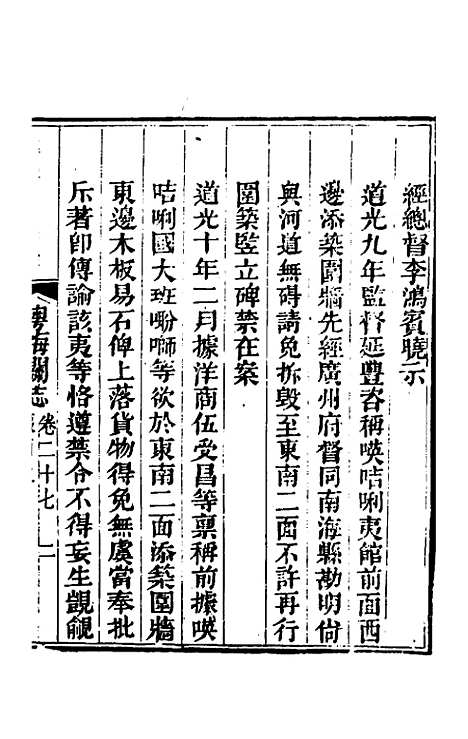 經總督李鴻賓曉示
道光九年監督延豐咨稱㗲咭唎夷館前面西
邊添築圍牆先經廣州府督同南海縣勘明尙
與河道無碍請免拆毀至東南二面不許再行
圍築竪立碑禁在案
道光十年二月據洋商伍受昌等稟稱前據㗲
咭唎國大班㗸啣等欲於東南二面添築圍牆
東邊木板易石俾上落貨物得免無虞當奉批
斥著卽傳諭該夷等恪遵禁令不得妄生覬覦
粤海關志 卷二十七